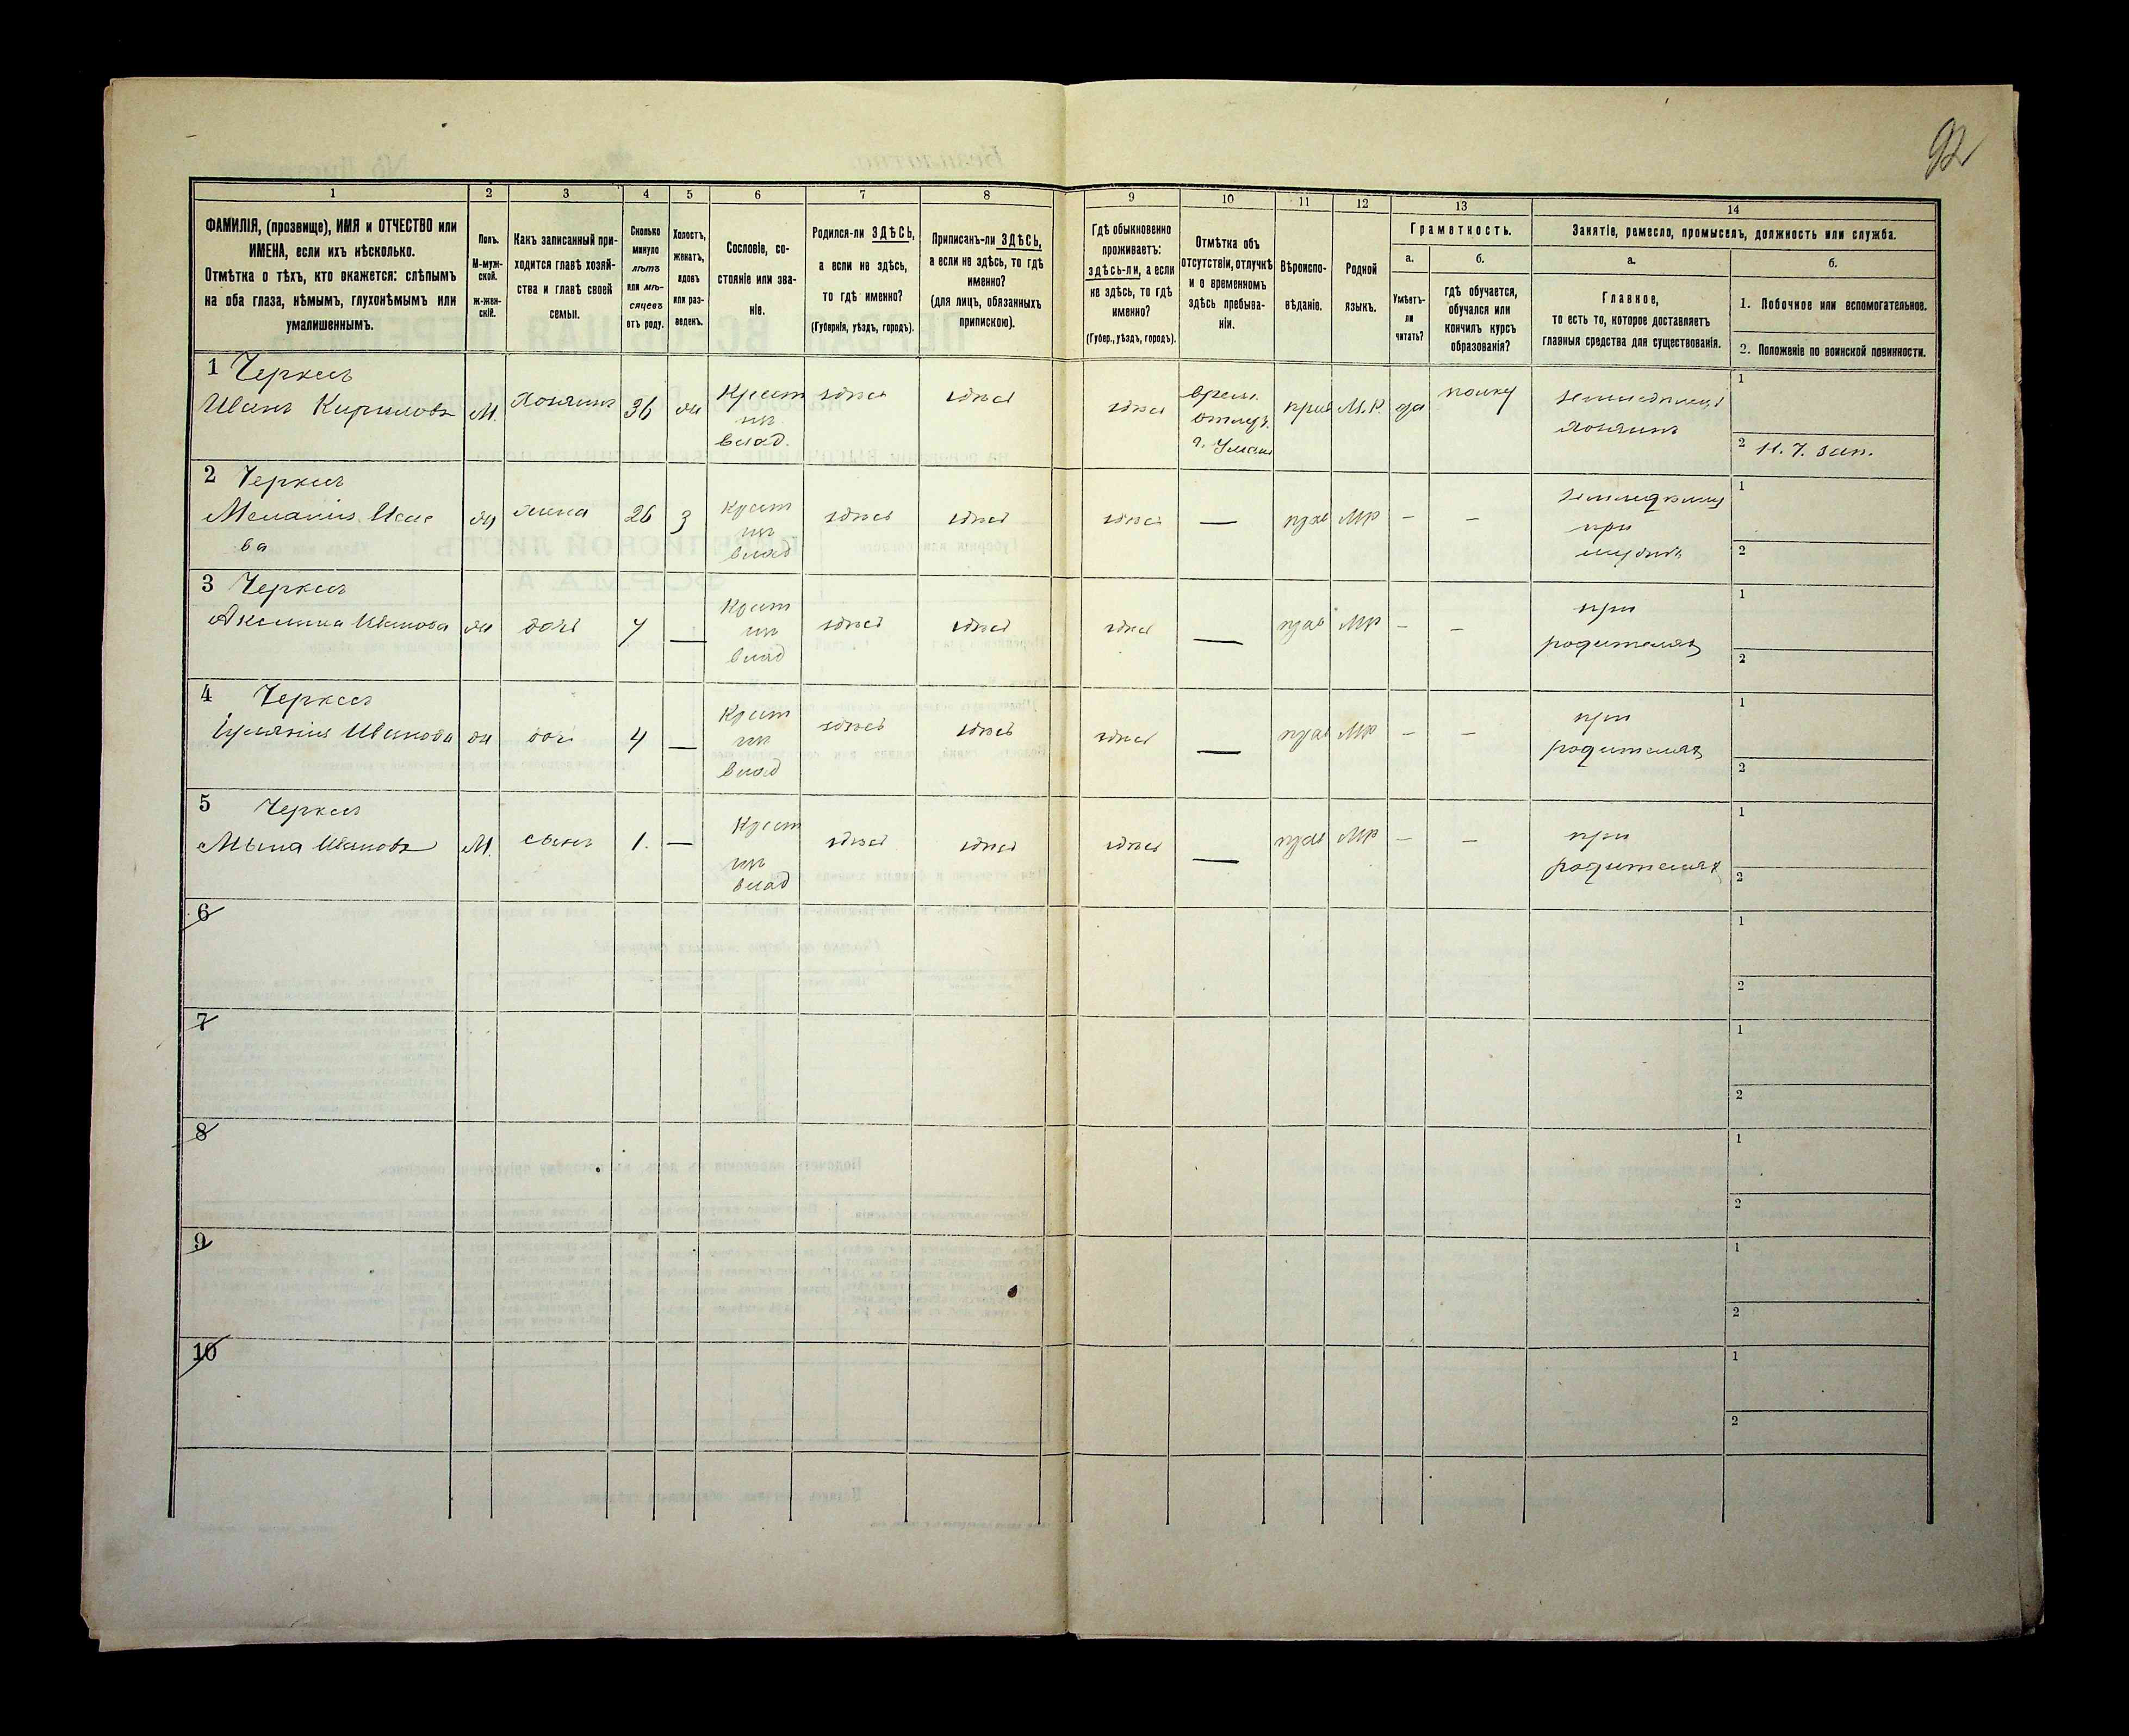 92
1 2 3 4 5 6 7 8 9 10 11 12 13 14
ФАМИЛІЯ, (прозвище), ИМЯ и ОТЧЕСТВО или
ИМЕНА, если ихъ нѣсколько.
Отмѣтка о тѣхъ, кто окажется: слѣпымъ
на оба глаза, нѣмымъ, глухонѣмымъ или
умалишеннымъ.
Полъ.
М-муж-
ской.
ж-жен-
скій.
Какъ записанный при-
ходится главѣ хозяй-
ства и главѣ своей
семьи.
Сколько
минуло
лѣтъ
или мѣ-
сяцевъ
отъ роду.
Холостъ,
женатъ,
вдовъ
или раз-
веденъ.
Сословіе, со-
стояніе или зва-
ніе.
Родился-ли ЗДѢСЬ,
а если не здѣсь,
то гдѣ именно?
(Губернія, уѣздъ, городъ).
Приписанъ-ли ЗДѢСЬ,
а если не здѣсь, то гдѣ
именно?
(для лицъ, обязанныхъ
припискою).
Гдѣ обыкновенно
проживаетъ:
здѣсь-ли, а если
не здѣсь, то гдѣ
именно?
(Губер., уѣздъ, городъ).
Отмѣтка объ
отсутствіи, отлучкѣ
и о временномъ
здѣсь пребыва-
ніи.
Вѣроиспо-
вѣданіе.
Родной
языкъ.
Грамотность.
а.
Умѣетъ-
ли
читать?
б.
гдѣ обучается,
обучался или
кончилъ курсъ
образованія?
Занятіе, ремесло, промыселъ, должность или служба.
а.
Главное,
то есть то, которое доставляетъ
главныя средства для существованія.
б.
1. Побочное или вспомогательное.
2. Положеніе по воинской повинности.
1 Черкесъ
Иванъ Кириловъ М. Хозяинъ 36 жн Крест здѣсь здѣсь здѣсь врем. прав М.Р. да полку земледѣлецъ 1
изъ отлуч. хозяинъ
влад. г. Умань 2 11. 7. зап.
2 Черкесъ
Меланія жн жена 26 З Крест здѣсь здѣсь здѣсь — прав МР — — 1
ва изъ при
влад мужѣ 2
3 Черкесъ
Акилина Иванова жн дочь 7 — Крест здѣсь здѣсь здѣсь — прав МР — — при 1
изъ родителях
влад 2
4 Черкесъ
Іуліянія Иванова жн доч 4 — Крест здѣсь здѣсь здѣсь — прав МР — — при 1
изъ родителях
влад 2
5 Черкесъ
Ивановъ М. сынъ 1. — Крест здѣсь здѣсь здѣсь — прав МР — — при 1
изъ родителях
влад 2
6 1
2
7 1
2
8 1
2
9 1
2
10 1
2